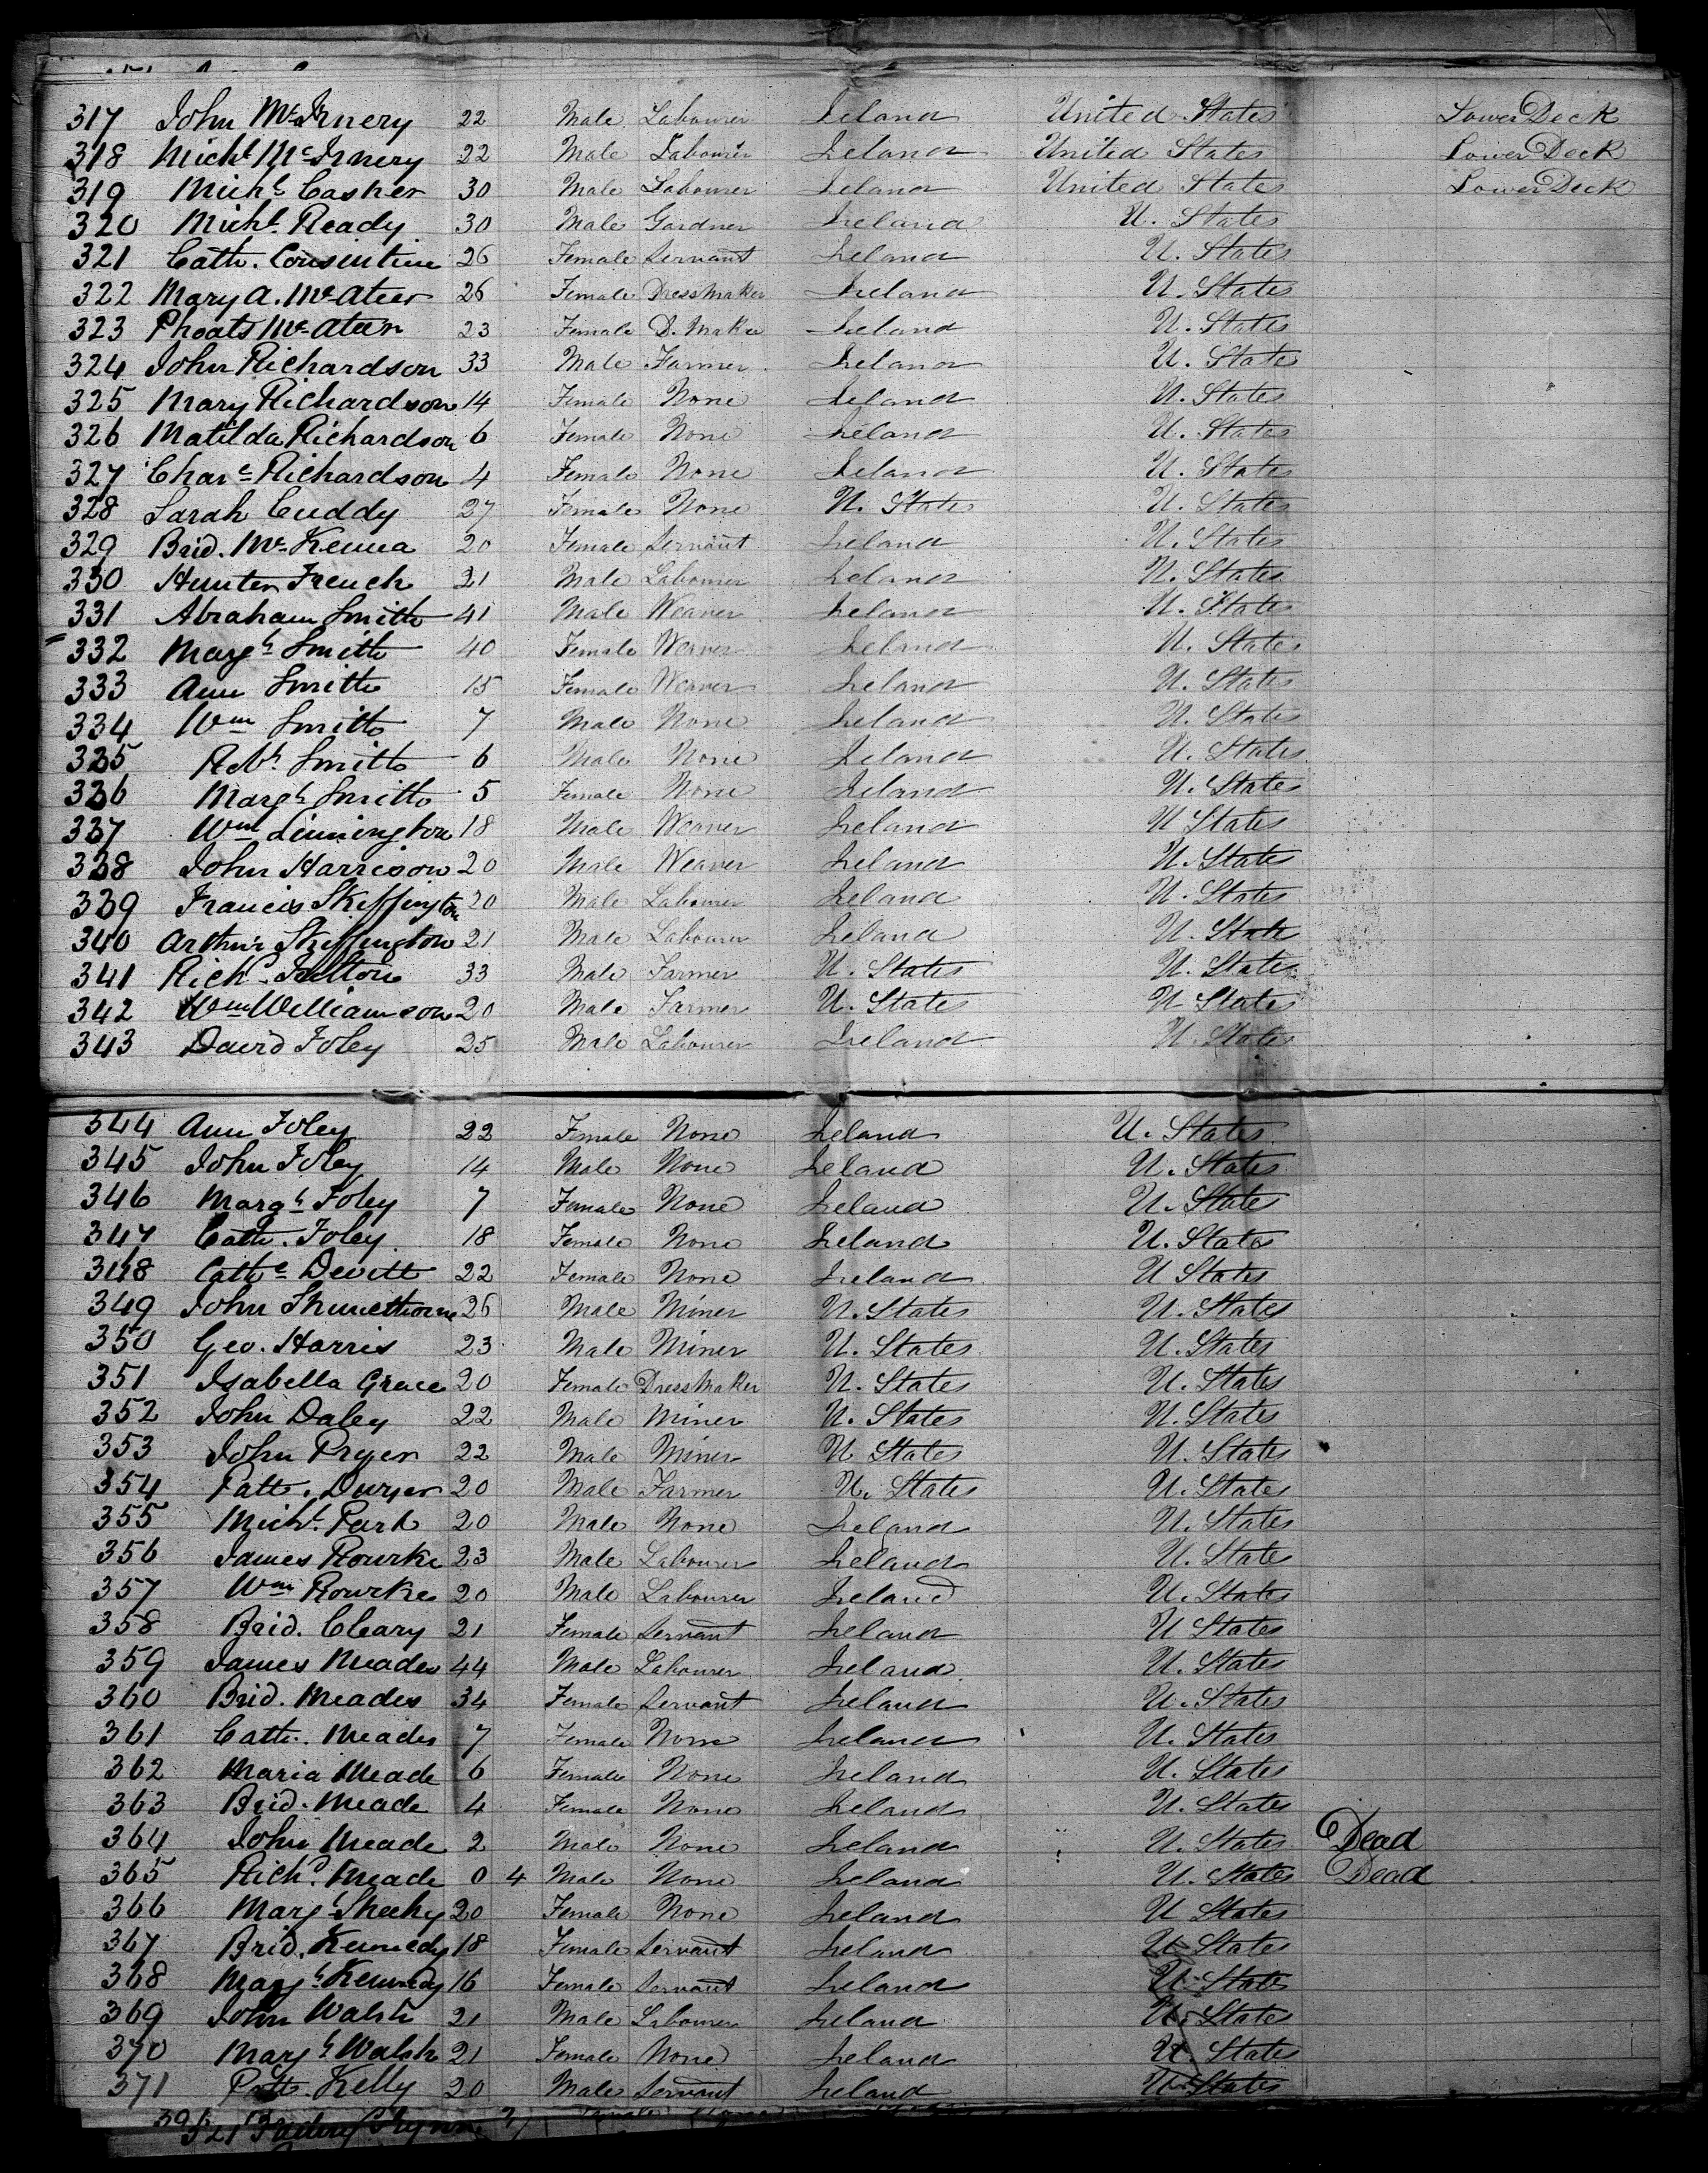 317 John McInery 22 Male Labourer Ireland United States Lower Deck
318 Michl McInery 22 Male Labourer Ireland United States Lower Deck
319 Michl Casher 30 Male Labourer Ireland United States Lower Deck
320 Michl Ready 30 Male Gardner Ireland U. States
321 Cath. Consintine 26 Female Servant Ireland U. States
322 Mary A. McAteer 26 Female Dressmaker Ireland U. States
323 Phoats McAteer 23 Female D. Maker Ireland U. States
324 John Richardson 33 Male Farmer Ireland U. States
325 Mary Richardson 14 Female None Ireland U. States
326 Matilda Richardson 6 Female None Ireland U. States
327 Chare Richardson 4 Female None Ireland U. States
328 Sarah Cuddy 27 Female None U. States U. States
329 Brid. McKenna 20 Female Servant Ireland U. States
330 Hunter French 21 Male Labourer Ireland U. States
331 Abraham Smith 41 Male Weaver Ireland U. States
332 Margt Smith 40 Female Weaver Ireland U. States
333 Ann Smith 15 Female Weaver Ireland U. States
334 Wm Smith 7 Male None Ireland U. States
335 Robt Smith 6 Male None Ireland U. States
336 Margt Smith 5 Female None Ireland U. States
337 Wm Linnington 18 Male Weaver Ireland U States
338 John Harrison 20 Male Weaver Ireland U. States
339 Francis Skeffington 20 Male Labourer Ireland U. States
340 Arthur Skeffington 21 Male Labourer Ireland U. State
341 Richd Fulton 33 Male Farmer U. States U. States
342 Wm Williamson 20 Male Farmer U. States U States
343 David Foley 25 Male Labourer Ireland U. States
344 Ann Foley 22 Female None Ireland U. States
345 John Foley 14 Male None Ireland U. States
346 Margt Foley 7 Female None Ireland U. States
347 Cath. Foley 18 Female None Ireland U. States
348 Cathe Devitt 22 Female None Ireland U States
349 John 26 Male Miner U. States U. States
350 Geo. Harris 23 Male Miner U. States U. States
351 Isabella Grace 20 Female Dressmaker U. States U. States
352 John Daley 22 Male Miner U. States U. States
353 John Pryer 22 Male Miner U States U. States
354 Patt. Dwyer 20 Male Farmer U. States U. States
355 Michl. Park 20 Male None Ireland U. States
356 James Rourke 23 Male Labourer Ireland U. State
357 Wm Rourke 20 Male Labourer Ireland U. States
358 Brid. Cleary 21 Female Servant Ireland U States
359 James Meade 44 Male Labourer Ireland U. States
360 Brid. Meades 34 Female Servant Ireland U. States
361 Cath. Meade 7 Female None Ireland U. States
362 Maria Meade 6 Female None Ireland U. States
363 Brid. Meade 4 Female None Ireland U. States
364 John Meade 2 Male None Ireland U. States Dead
365 Richd Meade 0 4 Male None Ireland U. States Dead
366 Margt Sheehy 20 Female None Ireland U States
367 Brid. Kennedy 18 Female Servant Ireland U States
368 Margt Kennedy 16 Female Servant Ireland U. States
369 John Walsh 21 Male Labourer Ireland U. States
370 Margt Walsh 21 Female None Ireland U. States
371 Patt. Kelly 20 Male Servant Ireland U. States